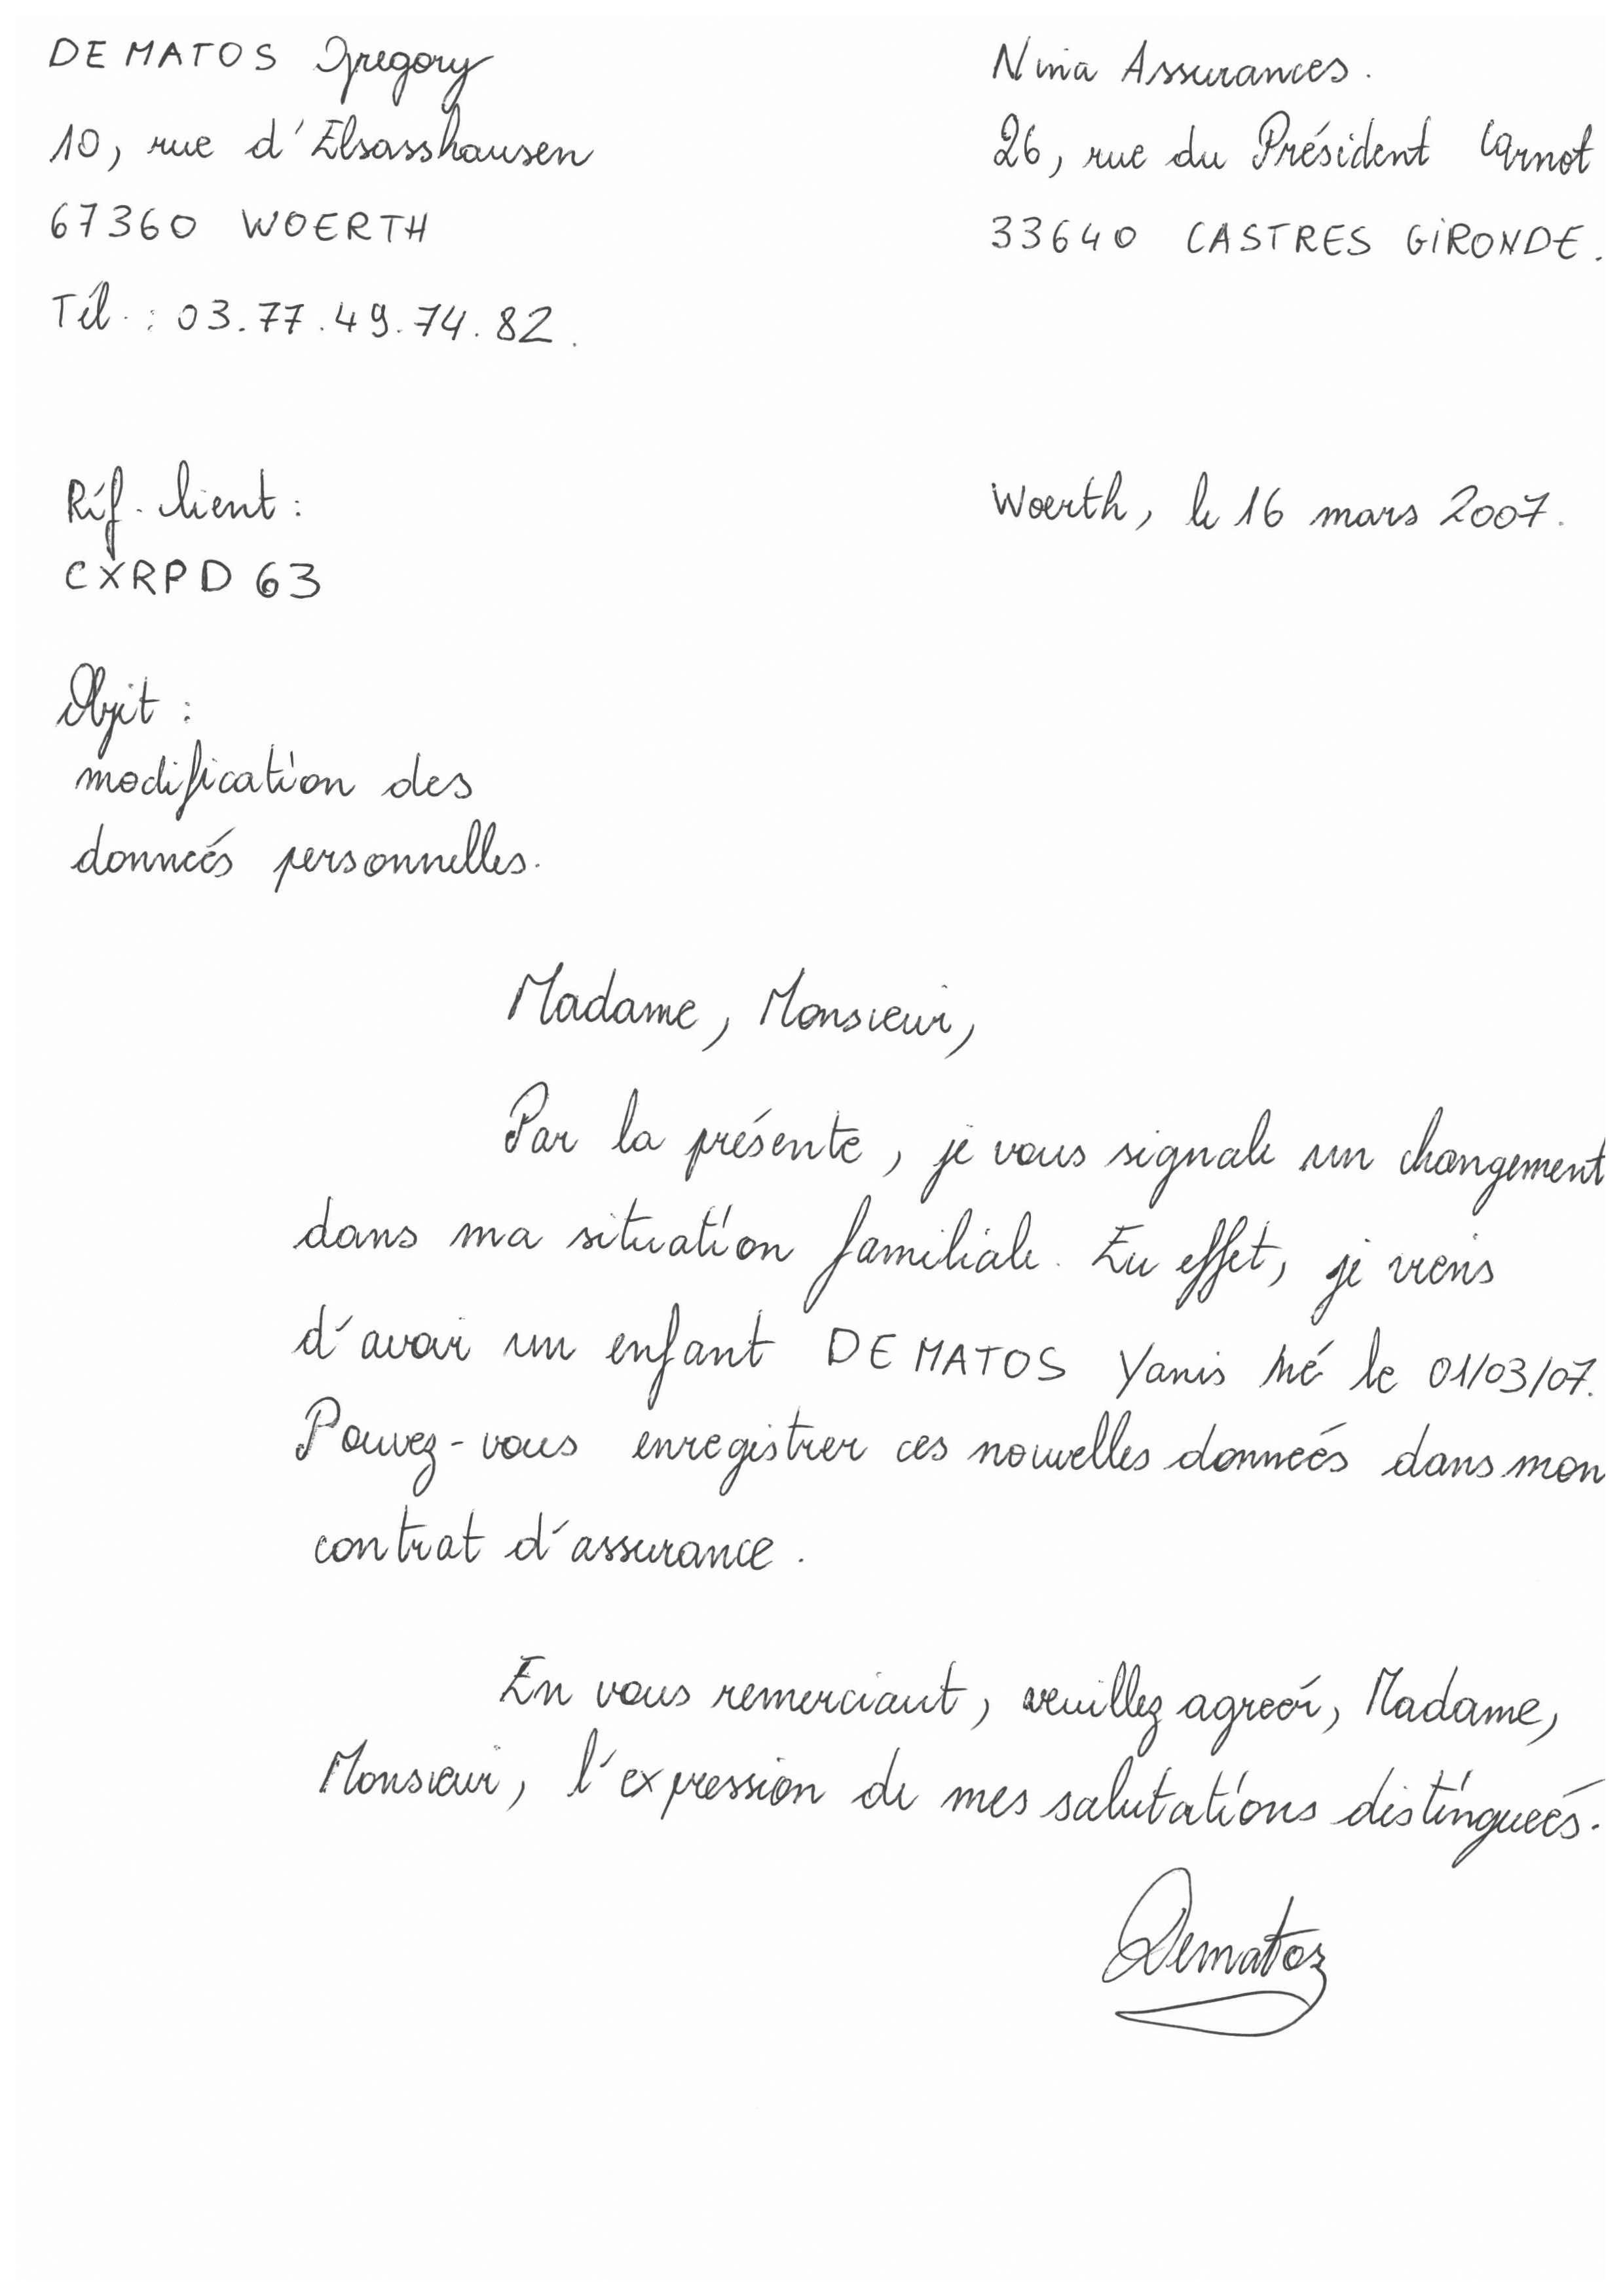 DE MATOS Gregory
10, rue d'Elsasshausen
67360 WOERTH
Tél. : 03.77.49.74.82.
Nina Assurances.
26, rue du Président Carnot
33640 CASTRES GIRONDE.
Réf. lient :
CXRPD 63
Woerth, le 16 mars 2007.
Objet :
modification des
données personnelles.
Madame, Monsieur,
Par la présente, je vous signale un changement
dans ma situation familiale. En effet, je viens
d'avoir un enfant DE MATOS Yanis né le 01/03/07.
Pouvez-vous enregistrer ces nouvelles données dans mon
contrat d'assurance.
En vous remerciant, veuillez agréer, Madame,
Monsieur, l'expression de mes salutations distinguées.
Dematos